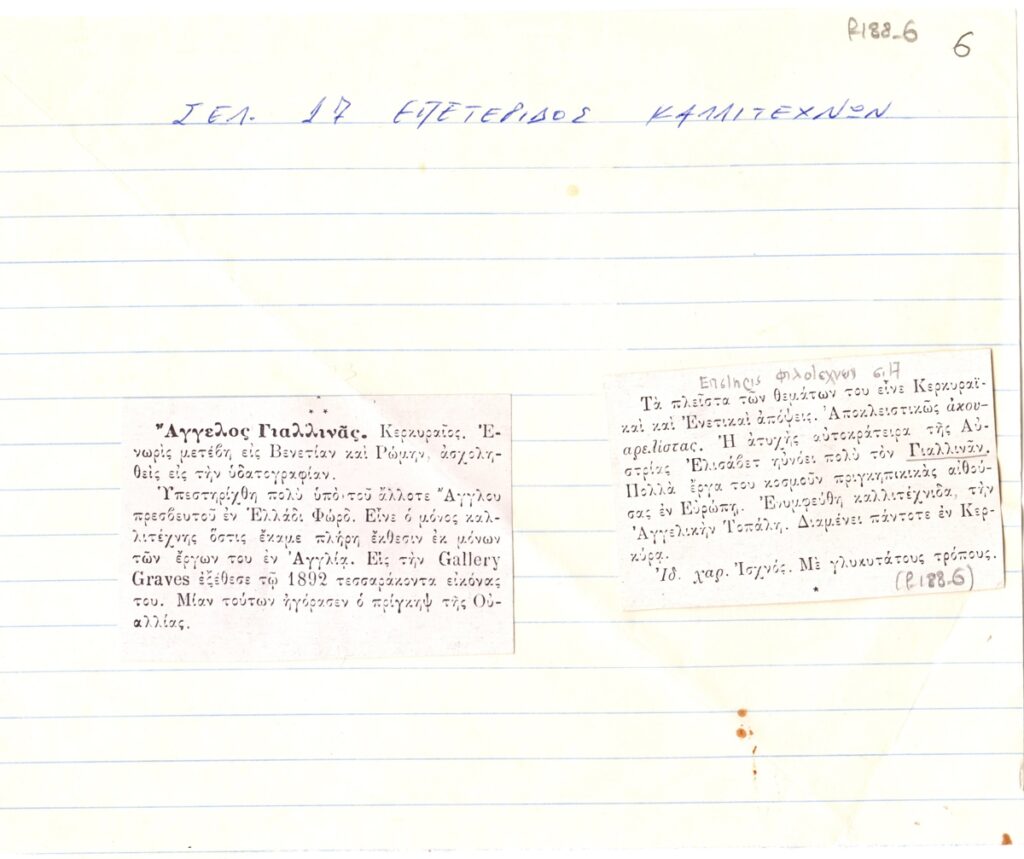 R188-6 6
ΣΕΛ. 17 ΕΠΕΤΕΡΙΔΟΣ ΚΑΛΛΙΤΕΧΝΩΝ
* *
Ἄγγελος Γιαλλινᾶς. Κερκυραῖος. Ἐ-
νωρὶς μετέβη εἰς Βενετίαν καὶ Ρώμην, ἀσχολη-
θεὶς εἰς τὴν ὑδατογραφίαν.
Ὑπεστηρίχθη πολὺ ὑπὸ τοῦ ἄλλοτε Ἄγγλου
πρεσβευτοῦ ἐν Ἑλλάδι Φώρδ. Εἶνε ὁ μόνος καλ-
λιτέχνης ὅστις ἔκαμε πλήρη ἔκθεσιν ἐκ μόνων
τῶν ἔργων του ἐν Ἀγγλίᾳ. Εἰς τὴν Gallery
Graves ἐξέθεσε τῷ 1892 τεσσαράκοντα εἰκόνας
του. Μίαν τούτων ἠγόρασεν ὁ πρίγκηψ τῆς Οὐ-
αλλίας.
Επετηρις φιλοτεχνων σ.17
Τὰ πλεῖστα τῶν θεμάτων του εἶνε Κερκυραϊ-
καὶ καὶ Ἐνετικαὶ ἀπόψεις. Ἀποκλειστικῶς ἀκου-
αρελίστας. Ἡ ἀτυχὴς αὐτοκράτειρα τῆς Αὐ-
στρίας Ἐλισάβετ ηὐνόει πολὺ τὸν Γιαλλινᾶν.
Πολλὰ ἔργα του κοσμοῦν πριγκηπικὰς αἰθού-
σας ἐν Εὐρώπῃ. Ἐνυμφεύθη καλλιτέχνιδα, τὴν
Ἀγγελικὴν Τοπάλη. Διαμένει πάντοτε ἐν Κερ-
κύρᾳ.
Ἰδ. χαρ. Ἰσχνός. Μὲ γλυκυτάτους τρόπους.
* (R188-6)